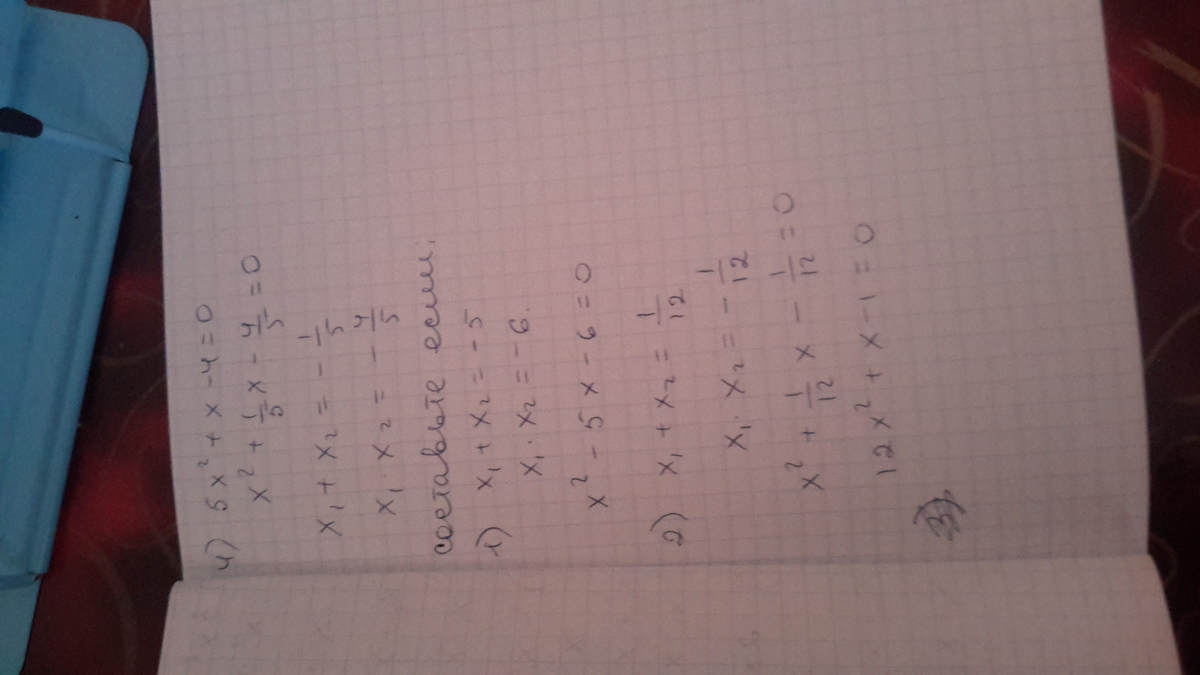 4) 5x² + x - 4 = 0
x² + 1/5 x - 4/5 = 0
x₁ + x₂ = - 1/5
x₁ · x₂ = - 4/5
составьте если:
1) x₁ + x₂ = -5
x₁ · x₂ = -6.
x² - 5x - 6 = 0
2) x₁ + x₂ = 1/12
x₁ · x₂ = - 1/12
x² + 1/12 x - 1/12 = 0
12x² + x - 1 = 0
3)